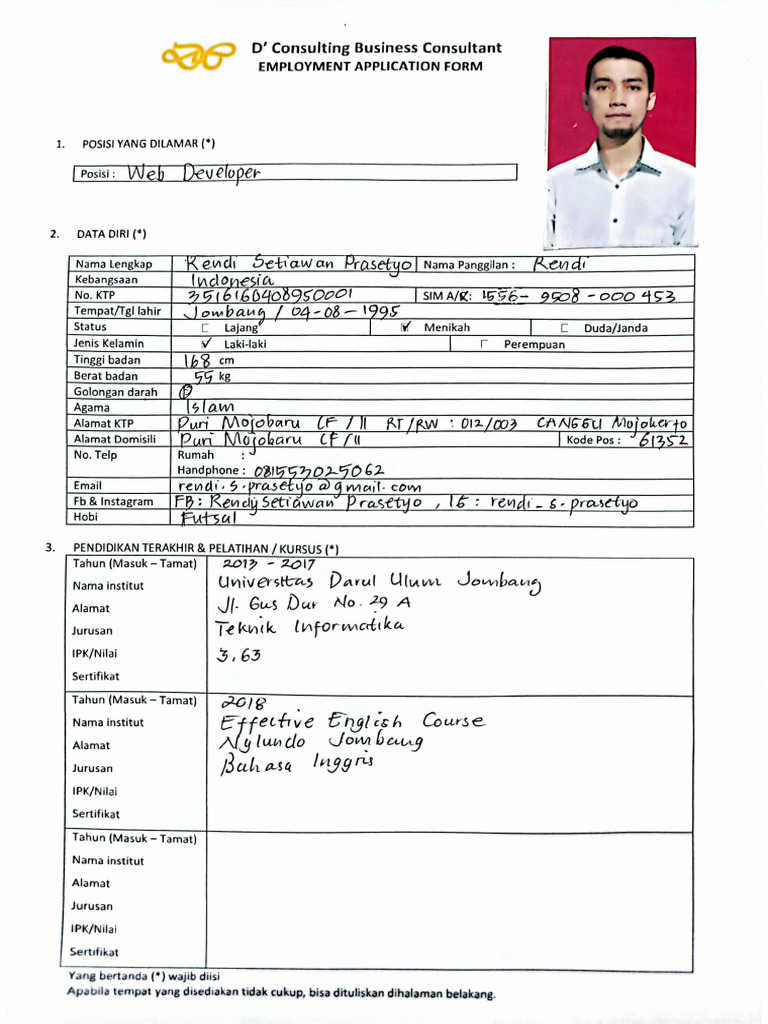 D' Consulting Business Consultant
EMPLOYMENT APPLICATION FORM
1. POSISI YANG DILAMAR (*)
Posisi : Web Developer
2. DATA DIRI (*)
Nama Lengkap Rendi Setiawan Prasetyo Nama Panggilan : Rendi
Kebangsaan Indonesia
No. KTP 3516160408950001 SIM A/C: 1556-9508-000453
Tempat/Tgl lahir Jombang / 04-08-1995
Status Lajang Menikah Duda/Janda
Jenis Kelamin Laki-laki Perempuan
Tinggi badan 168 cm
Berat badan 55 kg
Golongan darah
Agama Islam
Alamat KTP Puri Mojobaru CF/11 RT/RW : 012/003 CANGGU Mojokerto
Alamat Domisili Puri Mojobaru CF/11 Kode Pos : 61352
No. Telp Rumah :
Handphone : 081553025062
Email rendi.s.prasetyo@gmail.com
Fb & Instagram FB: Rendy Setiawan Prasetyo, IG : rendi_s.prasetyo
Hobi Futsal
3. PENDIDIKAN TERAKHIR & PELATIHAN / KURSUS (*)
Tahun (Masuk – Tamat) 2013 - 2017
Nama institut Universttas Darul Ulum Jombang
Alamat Jl. Gus Dur No. 29 A
Jurusan Teknik Informatika
IPK/Nilai 3,63
Sertifikat
Tahun (Masuk – Tamat) 2018
Nama institut Effective English Course
Alamat Nglundo Jombang
Jurusan Bahasa Inggris
IPK/Nilai
Sertifikat
Tahun (Masuk – Tamat)
Nama institut
Alamat
Jurusan
IPK/Nilai
Sertifikat
Yang bertanda (*) wajib diisi
Apabila tempat yang disediakan tidak cukup, bisa dituliskan dihalaman belakang.